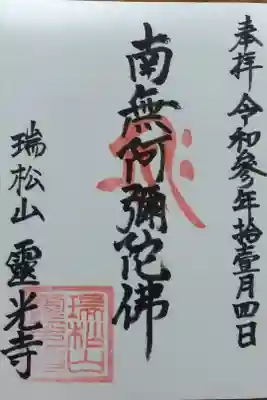 奉拝 令和參年拾壹月四日
南無阿彌陀佛
瑞松山 靈光寺
瑞松山